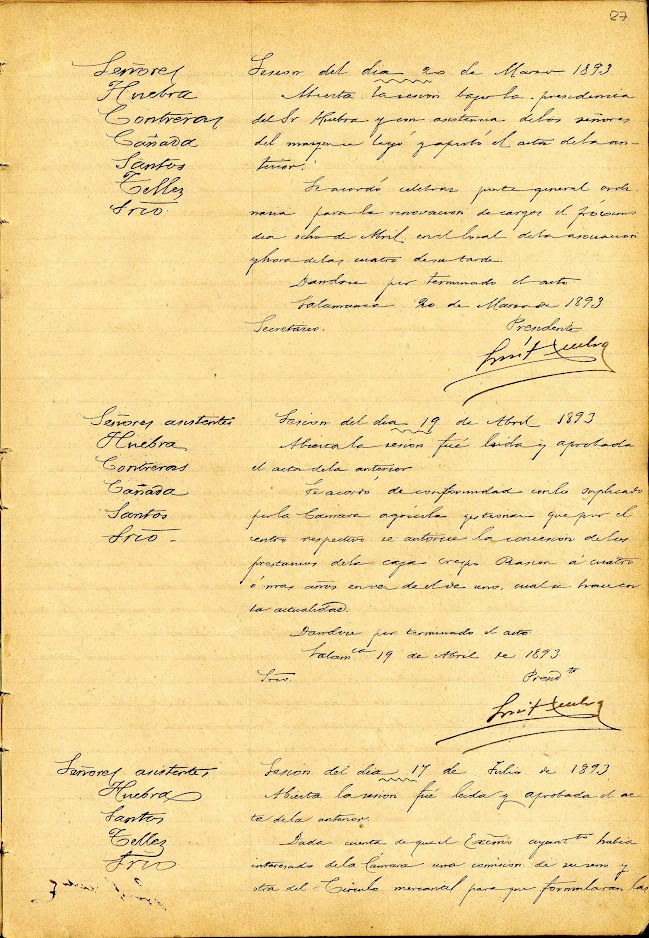 27
Señores
Huebra
Contreras
Cañada
Santos
Tellez
Srio.
Sesion del dia 20 de Marzo 1893
Abierta la sesion bajo la presidencia
del Sr Huebra y con asistencia de los señores
del margen se leyó y aprobó el acta de la an-
terior.
Se acordó celebrar junta general ordi
naria para la renovacion de cargos el próximo
dia ocho de Abril en el local de la asociacion
y hora de las cuatro de su tarde.
Dandose por terminado el acto.
Salamanca 20 de Marzo de 1893
Secretario. Presidente
Señores asistentes
Huebra
Contreras
Cañada
Santos
Srio.
Sesion del dia 19 de Abril 1893
Abierta la sesion fué leida y aprobada
el acta de la anterior
Se acordó de conformidad con lo suplicado
por la Camara agricola gestionar que por el
centro respectivo se autorice la concesion de los
prestamos de la caja Crespo Rascon á cuatro
ó mas años en vez de el de uno, cual se hace en
la actualidad.
Dandose por terminado el acto
Salamca 19 de Abril de 1893
Srio. Presidte
Señores asistentes
Huebra
Santos
Tellez
Srio
Sesion del dia 17 de Julio de 1893
Abierta la sesion fué leida y aprobada el ac
ta de la anterior.
Dada cuenta de que el Exmo ayuntto habia
interesado de la Camara una comision de su seno y
otra del Circulo mercantil para que formularan las